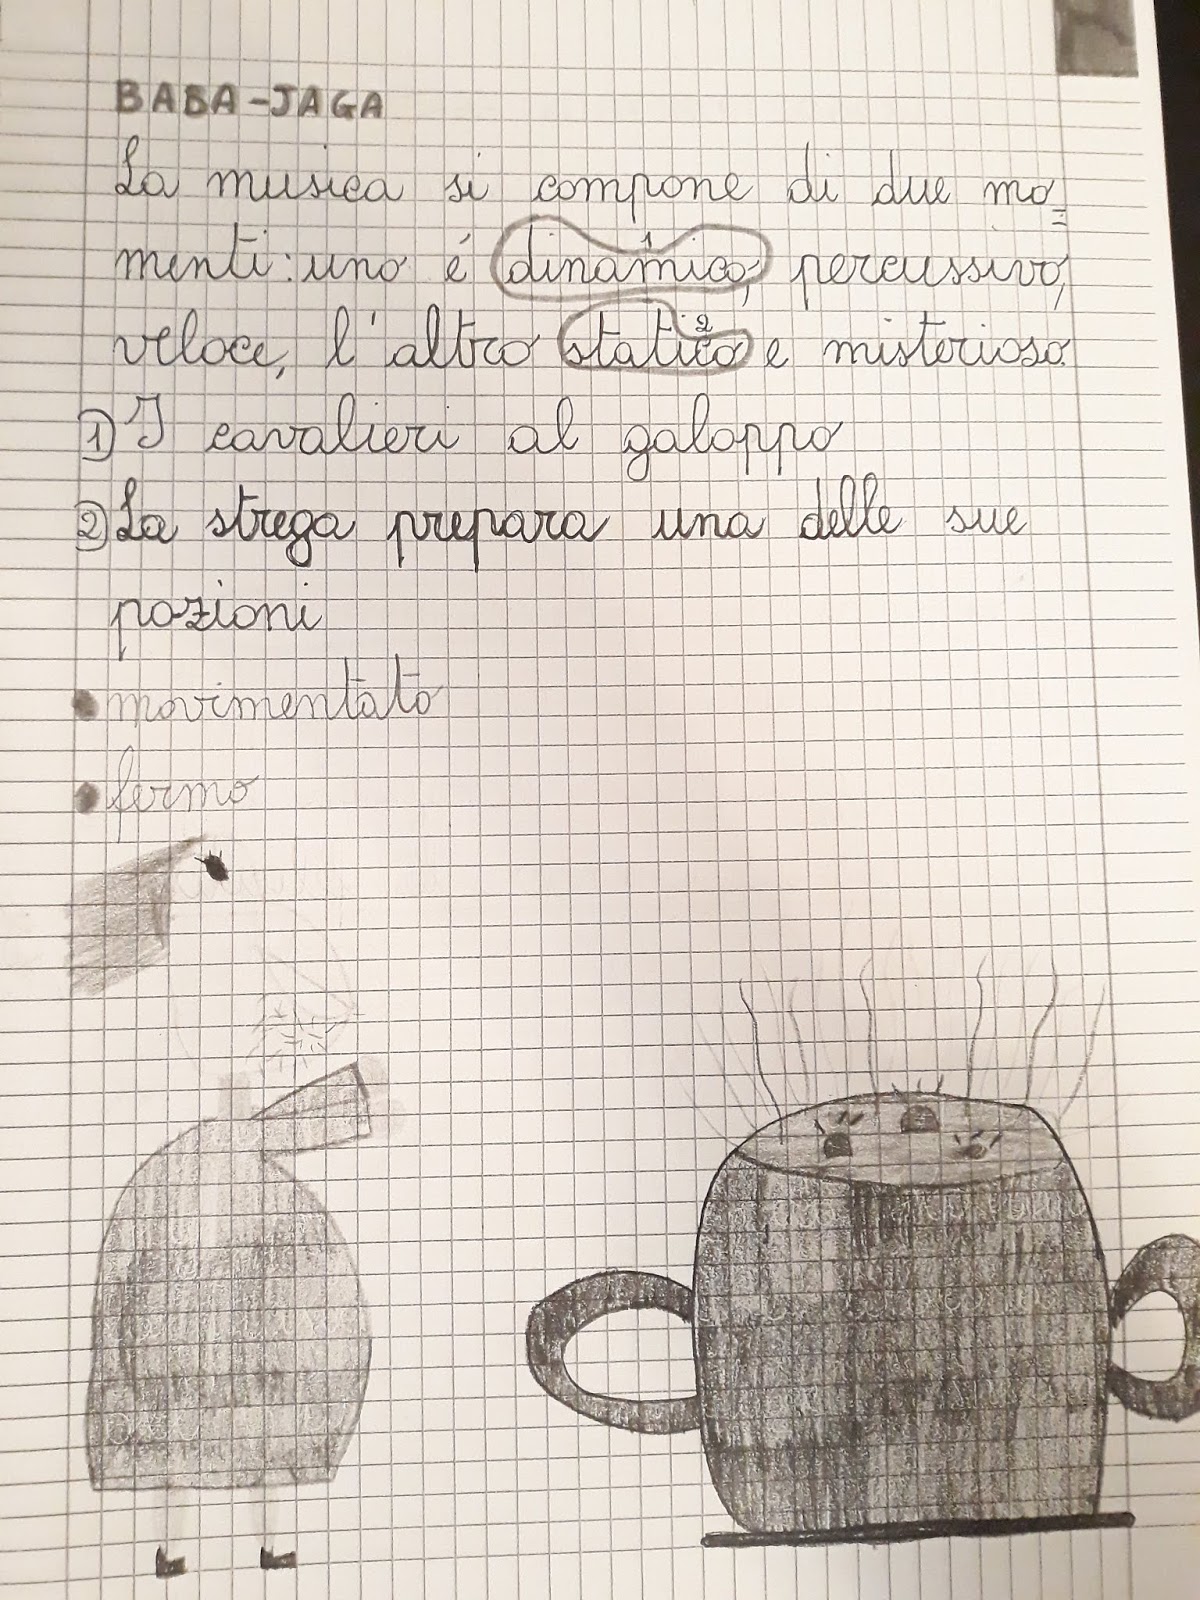 BABA-JAGA
La musica si compone di due mo=
menti: uno é dinamico, percussivo,
veloce, l'altro statico e misterioso.
1 I cavalieri al galoppo
2 La strega prepara una delle sue
pozioni
movimentato
fermo